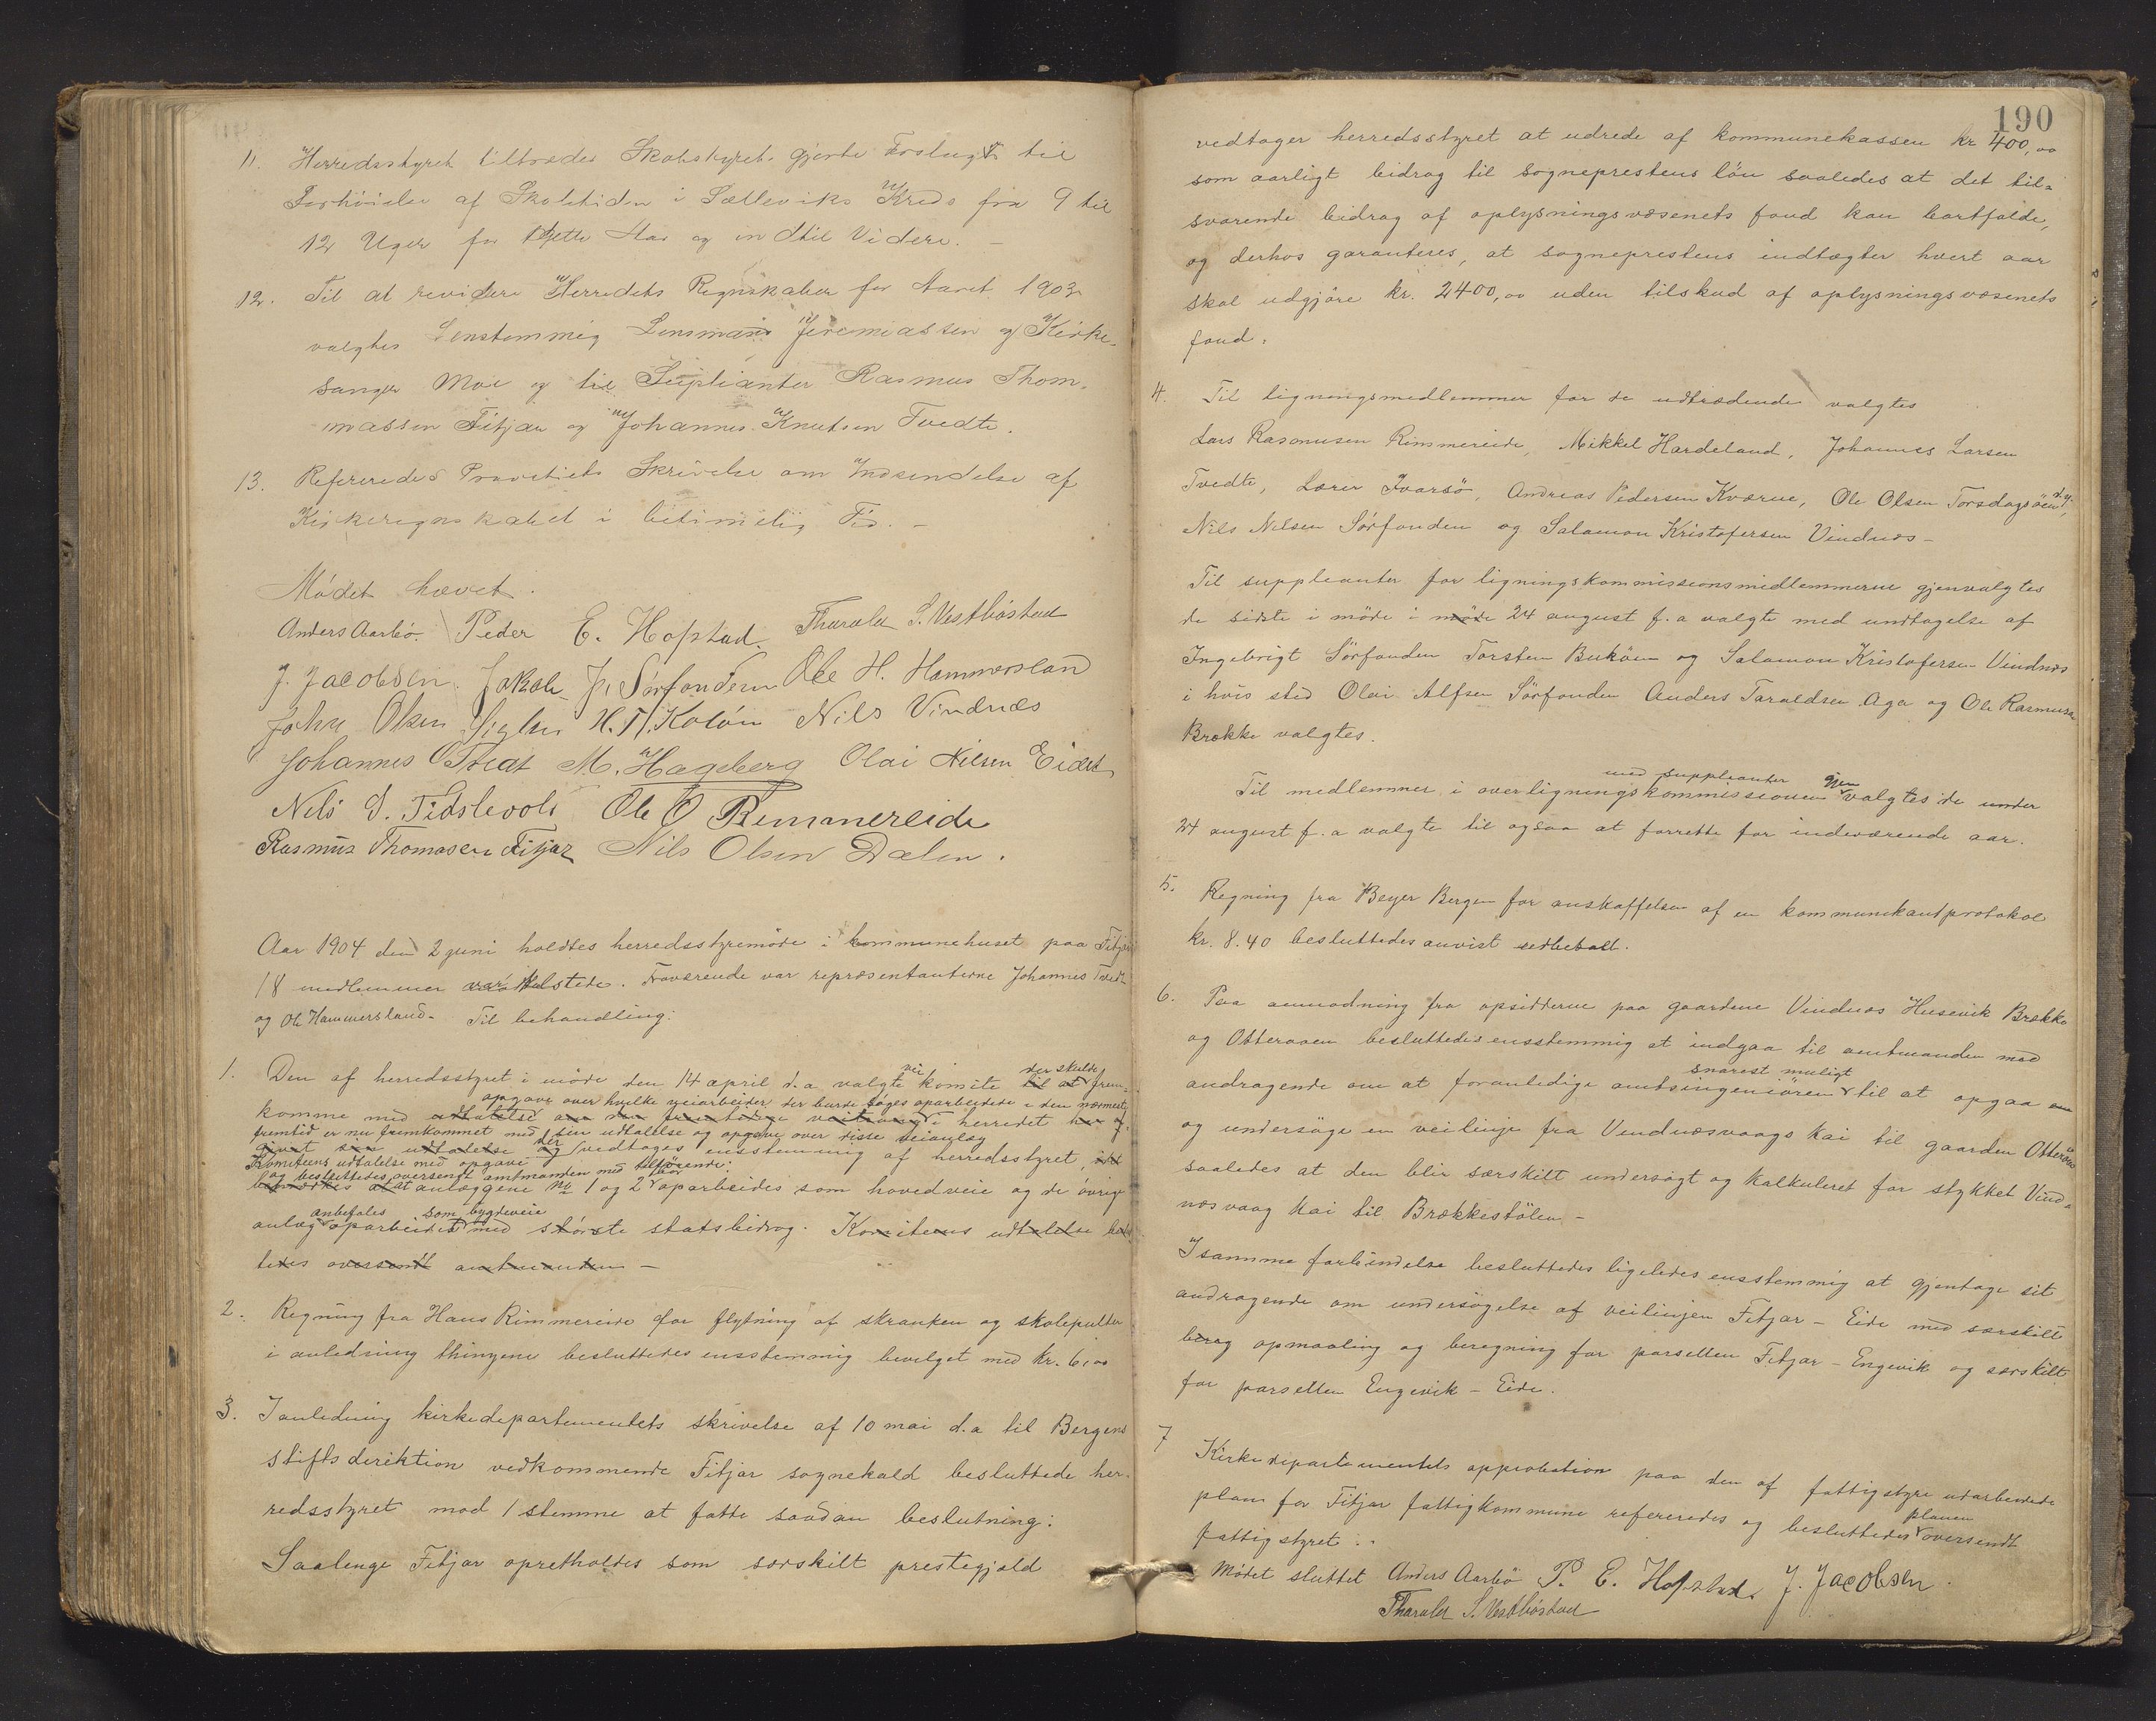 11. Herredsstyret tiltræder Skolestyrets gjorte Forslag til
Forhøielse af Skoletiden i Sælleviks Kreds fra 9 til
12 Uger for dette Aar og indtil Videre. –
12. Til at revidere Herredets Regnskaber for Aaret 1903
valgtes Eenstemmig Lensmand Jeremiassen og Kirke-
sanger Moe og til Suplianter Rasmus Thom-
massen Fitjar og Johannes Knutsen Tvedte.
13. Refereredes Provstiets Skrivelse om Indsendelse af
Kirkeregnskabet i betimelig Tid. –
Mødet hævet.
Anders Aarbø. Peder E. Hofstad. Tharald S. Vestbøstad
J. Jacobsen. Jakob J. Sørfonden Ole H. Hammersland
Johan Olsen H. T. Koløen Nils Vindnæs
Johannes O Tveat M. Hageberg Olai Nilsen Eidet
Nils D. Tislevold Ole O Rimmereide
Rasmus Thomasen Fitjar Nils Olsen Dalen.
Aar 1904 den 2 juni holdtes herredsstyremöde i kommunehuset paa Fitjar
18 medlemmer var tilstede. Fraværende var repræsentanterne Johannes Tvedt
og Ole Hammersland. Til behandling:
1. Den af herredsstyret i möde den 14 april d.a. valgte vei komite til at der skulde frem-
opgave over hvilke veiarbeider der burde söges oparbeidede i den nærmeste
komme med udtalelse om den fremtidige i herredet har og
fremtid er nu fremkommet med sin udtalelse og opgave over disse veianlæg
givet sin udtalelse og der vedtages enstemmig af herredsstyret, idet
Komiteens udtalelse med opgave
og besluttedes oversendt amtmanden med tilföiende:
at anlæggene No 1 og 2 bör oparbeides som hovedveie og de övrige
anbefales som bygdeveie
anlæg oparbeidet med störste statsbidrag. Komiteens udtalelse
oversendt amtmanden –
2. Regning fra Hans Rimmereide for flytning af skranken og skolepulter
i anledning thingene besluttedes enstemmig bevilget med kr. 6,00
3. I anledning kirkedepartementets skrivelse af 10 mai d.a til Bergens
stiftsdirektion vedkommende Fitjar sognekald besluttede her-
redsstyret mod 1 stemme at fatte saadan beslutning:
Saalenge Fitjar opretholdes som særskilt prestegjæld
190
vedtager herredsstyret at udrede af kommunekassen kr 400,00
som aarligt bidrag til sogneprestens lön saaledes at det til-
svarende bidrag af oplysningsvæsenets fond kan bortfalde,
og derhos garanteres, at sogneprestens indtægter hvert aar
skal udgjöre kr. 2400,00 uden tilskud af oplysningsvæsenets
fond.
4. Til ligningsmedlemmer for de udtrædende valgtes
Lars Rasmusen Rimmereide, Mikkel Hardeland, Johannes Larsen
Tvedte, Lærer Ivarsö, Andreas Pedersen Kværne, Ole Olsen Torsdagsöen d.y.,
Nils Nilsen Sörfonden og Salamon Kristofersen Vindnæs –
Til suppleanter for ligningskommissionsmedlemmerne gjenvalgtes
de sidste i möde i möde 24 august f.a valgte med undtagelse af
Ingebrigt Sörfonden Torsten Buköen og Salamon Kristofersen Vindnæs
i hvis sted Olai Alfsen Sörfonden Anders Taraldsen Aga og Ole Rasmusen
Brække valgtes.
med suppleanter gjen
Til medlemmer i overligningskommissionen valgtes de under
24 august f.a valgte til ogsaa at forrette for indeværende aar.
5. Regning fra Beyer Bergen for anskaffelsen af en kommunikantprotokol
kr. 8.40 besluttedes anvist udbetalt.
6. Paa anmodning fra opsidderne paa gaardene Vindnæs Husevik Brække
og Otteraaen besluttedes enstemmig at indgaa til amtmanden med
snarest muligt
andragende om at foranledige amtsingeniören til at opgaa
og undersöge en veilinje fra Vindnæsvaags kai til gaarden Otteröen
saaledes at den blir særskilt undersögt og kalkuleret for stykket Vind-
næsvaag kai til Brækkestölen –
I samme forbindelse besluttedes ligeledes enstemmig at gjentage sit
andragende om undersögelse af veilinjen Fitjar – Eide med særskilt
bereg opmaaling og beregning for parsellen Fitjar – Engevik og særskilt
for parsellen Engevik – Eide.
7 Kirkedepartementets approbation paa den af fattigstyre udarbeidede
plan for Fitjar fattigkommune refereredes og besluttedes planen oversendt
fattigstyret.
Mödet sluttet Anders Aarbö P. E. Hofstad. J. Jacobsen.
Tharald S. Vestbøstad